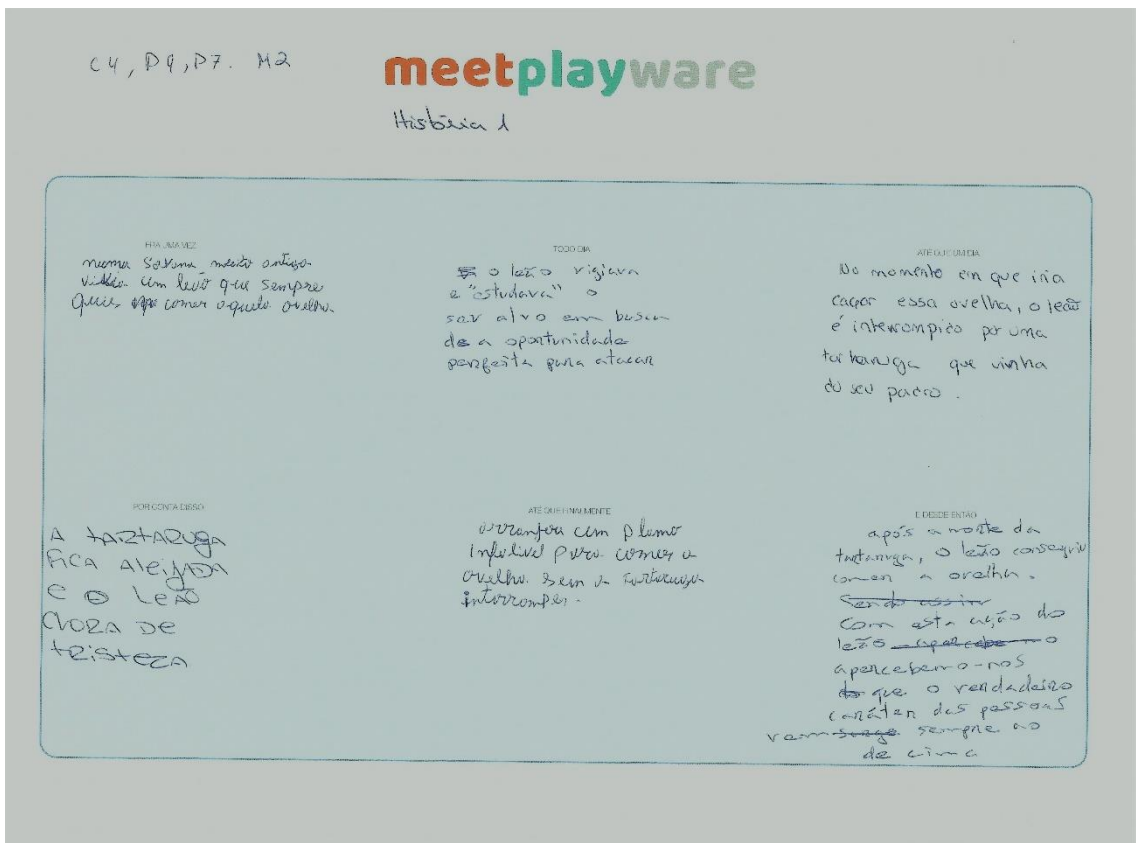 C4, D9, D7. M2
meetplayware
História 1
ERA UMA VEZ
numa savana muito antiga
vivia um leão que sempre
quis comer aquela ovelha.
TODO DIA
o leão vigiava
e "estudava" o
seu alvo em busca
de a oportunidade
perfeita para atacar
ATÉ QUE UM DIA
No momento em que iria
caçar essa ovelha, o leão
é interrompido por uma
tartaruga que vinha
do seu
POR CONTA DISSO
A TARTARUGA
FICA ALEIJADA
E O LEÃO
CHORA DE
TRISTEZA
ATÉ QUE FINALMENTE
um plano
infalível para comer a
ovelha sem a tartaruga
interromper.
E DESDE ENTÃO
após a morte da
tartaruga, o leão conseguiu
comer a ovelha.
Sendo assim
Com esta ação do
leão apercebemo
apercebemo-nos
que o verdadeiro
caráter das pessoas
vem surge sempre ao
de cima